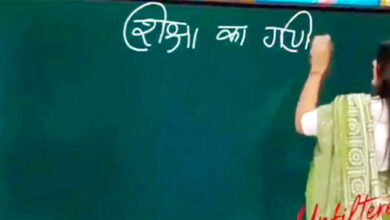 शिक्षा का गणि
Unfilter